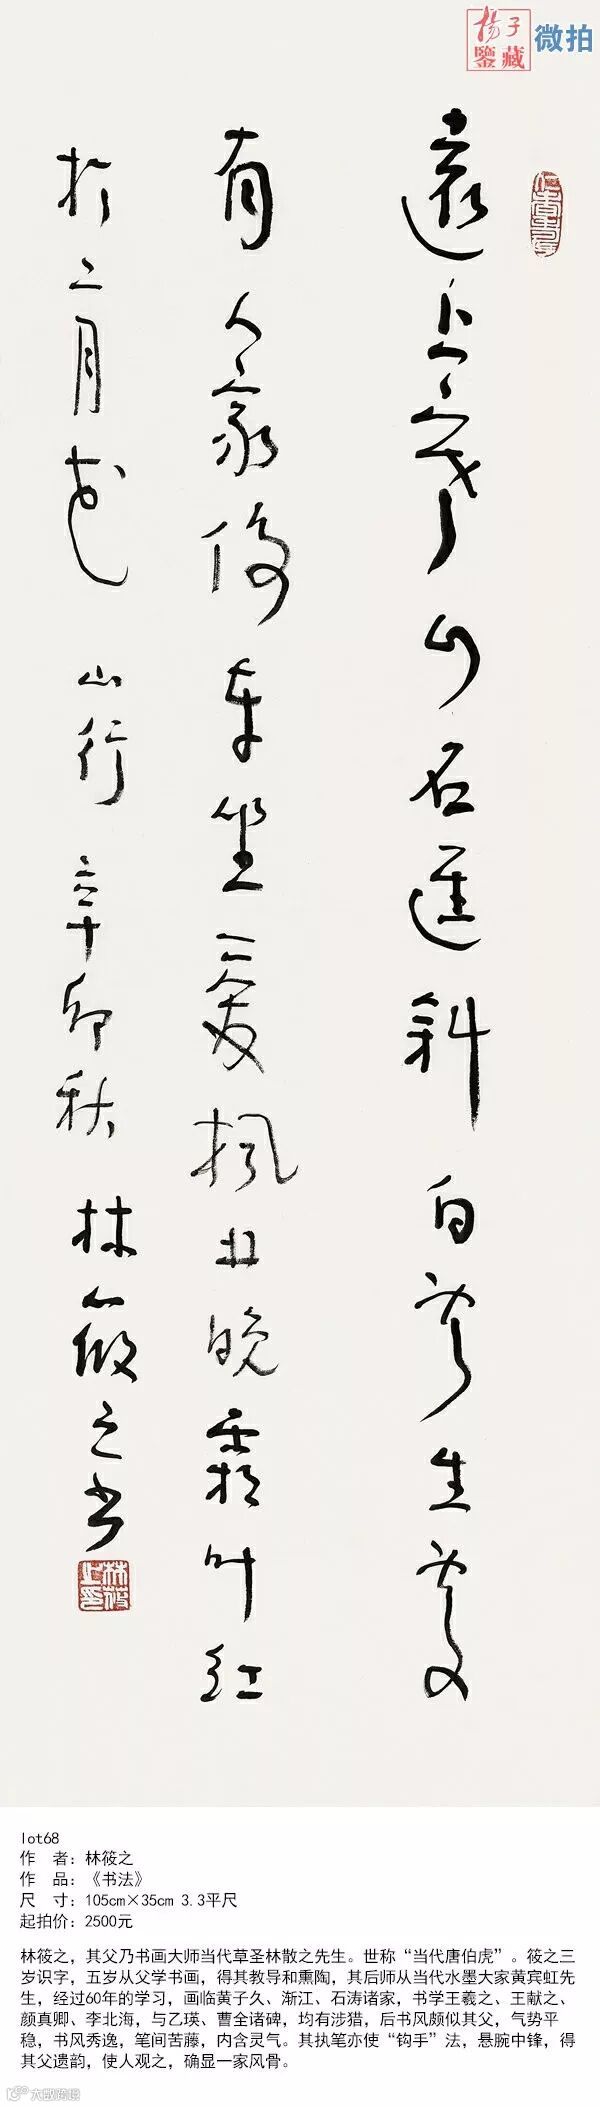 揚子
鑒藏
微拍
遠上寒山石徑斜白雲生處
有人家停車坐愛楓林晚霜叶紅
於二月花 山行 辛卯秋 林筱之书
林筱之印
lot68
作 者：林筱之
作 品：《书法》
尺 寸：105cm×35cm 3.3平尺
起拍价：2500元
林筱之，其父乃书画大师当代草圣林散之先生。世称“当代唐伯虎”。筱之三
岁识字，五岁从父学书画，得其教导和熏陶，其后师从当代水墨大家黄宾虹先
生，经过60年的学习，画临黄子久、渐江、石涛诸家，书学王羲之、王献之、
颜真卿、李北海，与乙瑛、曹全诸碑，均有涉猎，后书风颇似其父，气势平
稳，书风秀逸，笔间苦藤，内含灵气。其执笔亦使“钩手”法，悬腕中锋，得
其父遗韵，使人观之，确显一家风骨。
大数跨境